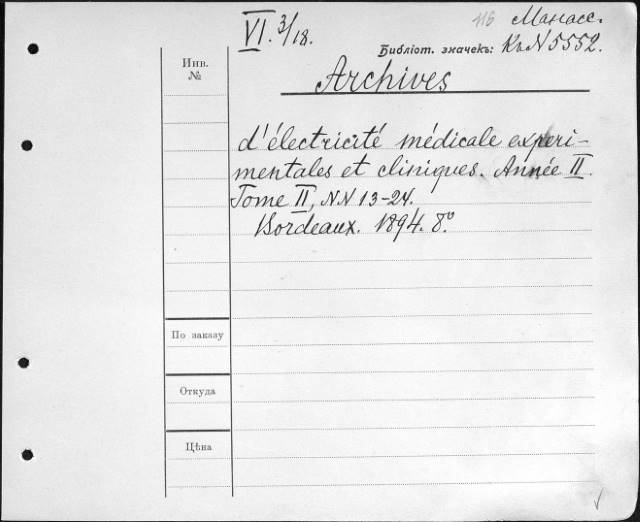 VI. 3/18.
116 Манасс.
Библіот. значекъ: Къ N 5552.
Инв.
№
Archives
d'électricité médicale experi-
mentales et cliniques. Année II.
Tome II, NN 13-24.
Bordeaux. 1894. 8º
По заказу
Откуда
Цѣна